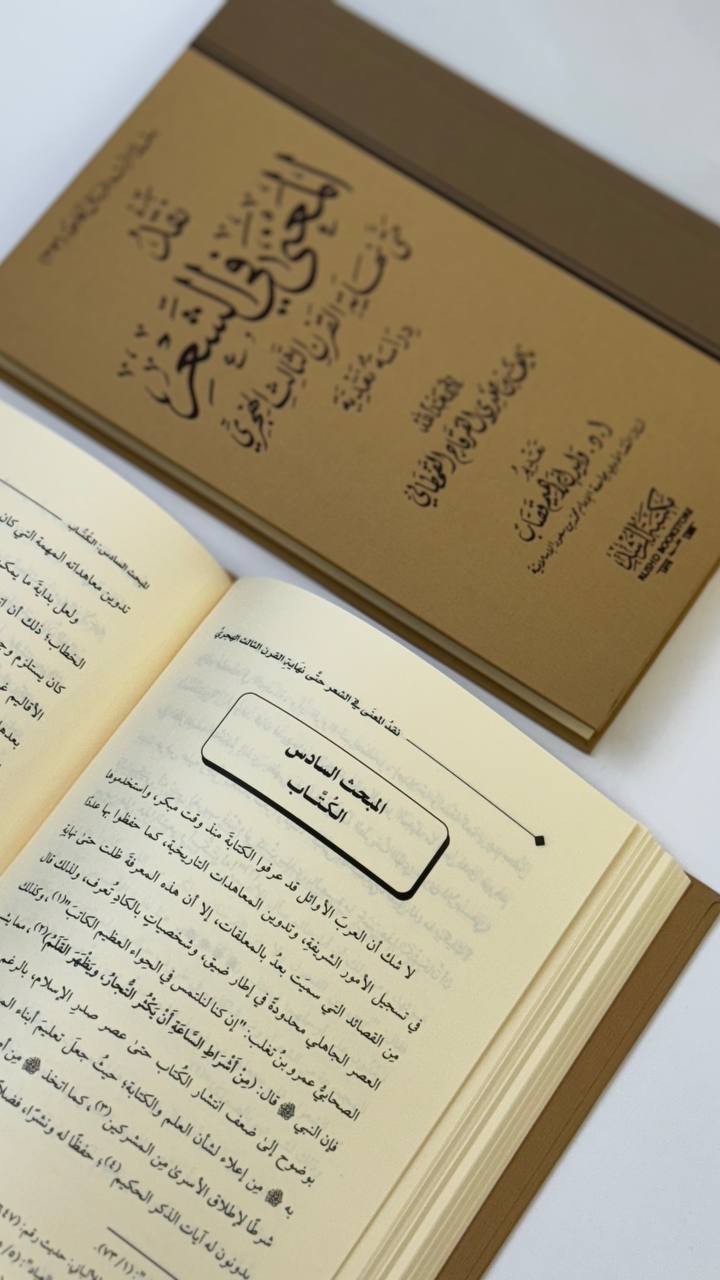 نقد
المعنى في الشعر
حتى نهاية القرن الثالث الهجري
دراسة نقدية
تقديم
مكتبة الرشد
RUSHD BOOKSTORE
المبحث السادس: الكُتَّاب
تدوين معاهداته المهمة التي كان
ولعل بداية ما يمكن
الخطاب؛ ذلك أن
كان يستلزم
الأقاليم
بعدها
نقدُ المعنَى في الشعر حتَّى نهايةِ القرن الثالث الهجريِّ
المبحث السادس
الكُتَّاب
لا شك أن العربَ الأوائل قد عرفوا الكتابةَ منذ وقت مبكر، واستخدموها
في تسجيل الأمور الشريفةِ، وتدوين المعاهدات التاريخية، كما حفظوا بها عددًا
مِن القصائد التي سميَت بعدُ بالمعلقات، إلا أن هذه المعرفةَ ظلت حتىٰ نهايةِ
العصر الجاهلي محدودةً في إطار ضيق، وشخصياتٍ بالكادِ تُعرف، ولذلك قال
الصحابيُّ عمرو بنُ تغلب: "إن كنا لنلتمس في الحِواء العظيم الكاتبَ"(١)، وكذلك
فإن النبي ﷺ قال: (مِنْ أَشْرَاطِ السَّاعَةِ أَنْ يَكْثُرَ التُّجارُ، وَيَظْهَرَ القَلَمُ)(٢)، مما
بوضوح إلىٰ ضعف انتشار الكُتاب حتىٰ عصر صدرِ الإسلام، بالرغم
به ﷺ مِن إعلاء لشأن العلم والكتابة؛ حيثُ جعلَ تعليمَ أبناء
شرطًا لإطلاق الأسرىٰ مِن المشركين(٣)، كما اتخذ ﷺ مِن
يدونون له آيات الذكر الحكيم(٤)؛ حفظًا له ونشرًا،
(٧٣/١).
حديث رقم: